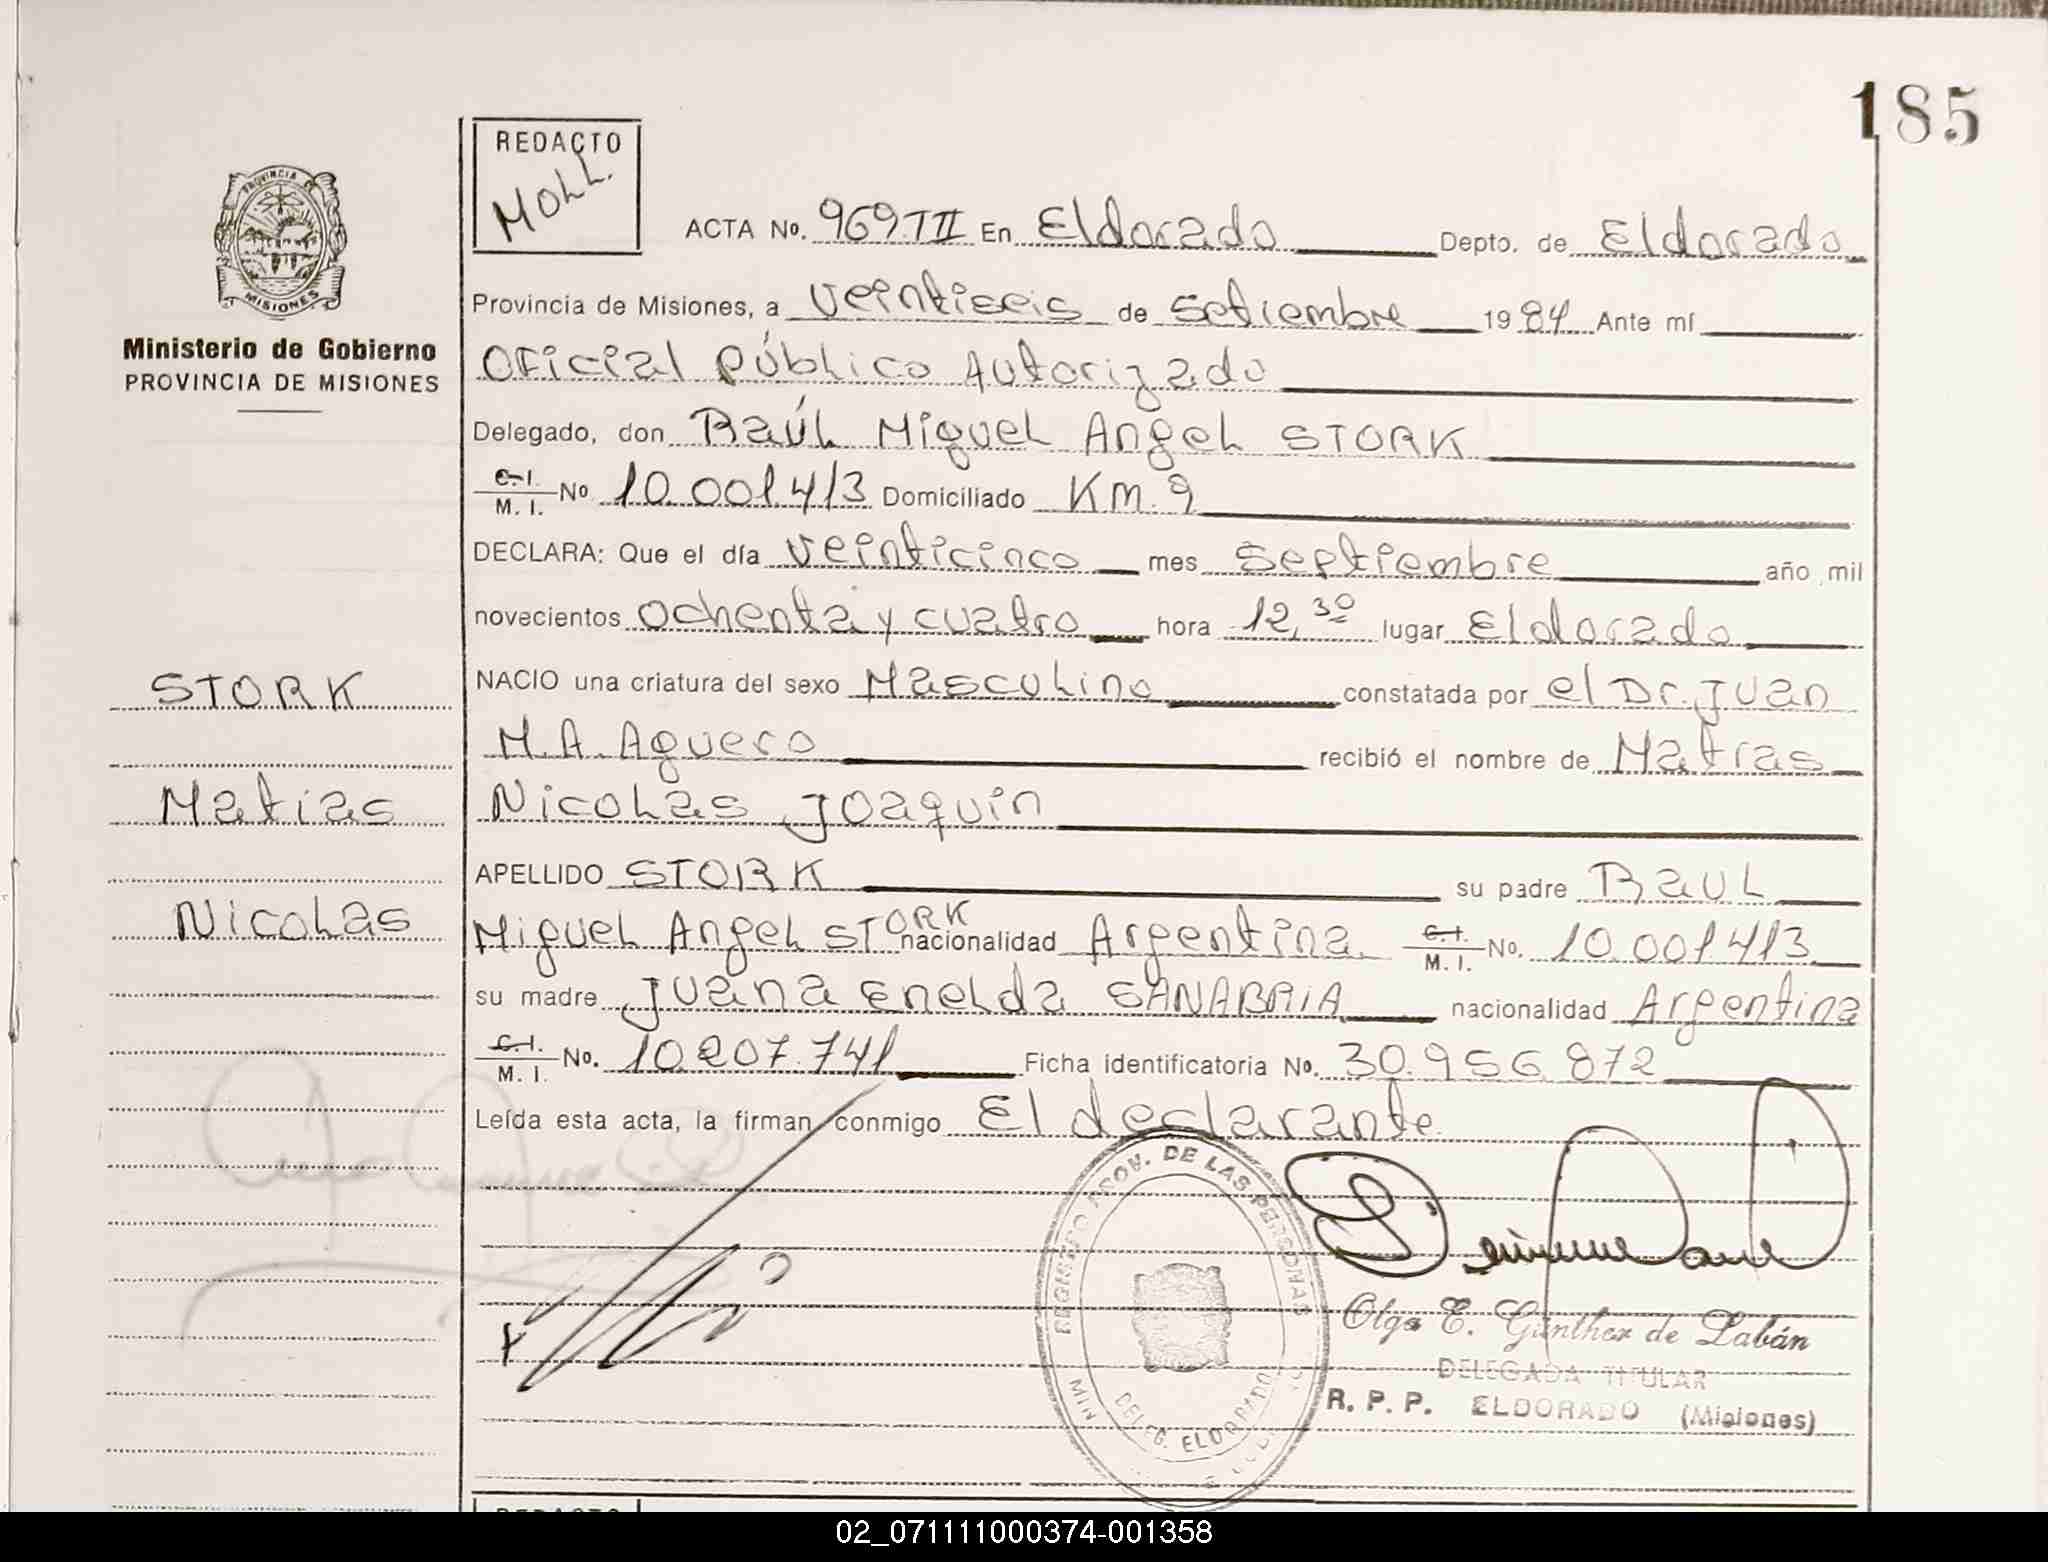 185
PROVINCIA DE
MISIONES
Ministerio de Gobierno
PROVINCIA DE MISIONES
STORK
Matias
Nicolas
REDACTO
MOLL.
ACTA No. 969 TII En Eldorado Depto. de Eldorado
Provincia de Misiones, a veintiseis de setiembre 1984 Ante mí
Oficial Público Autorizado
Delegado, don Raúl Miguel Angel STORK
C.I. / M.I. No 10.001.413 Domiciliado Km. 9
DECLARA: Que el día veinticinco mes septiembre año mil
novecientos ochenta y cuatro hora 12,30 lugar Eldorado
NACIO una criatura del sexo Masculino constatada por el Dr. Juan
M.A. Aguero recibió el nombre de Matias
Nicolas Joaquin
APELLIDO STORK su padre Raul
Miguel Angel STORK nacionalidad Argentina. C.I. / M.I. No. 10.001413
su madre Juana Enelda SANABRIA nacionalidad Argentina
C.I. / M.I. No. 10.207.741 Ficha identificatoria No. 30.956.872
Leída esta acta, la firman conmigo El declarante
REGISTRO PROV. DE LAS PERSONAS
DELEG. ELDORADO
Olga E. Günther de Labán
DELEGADA TITULAR
R. P. P. ELDORADO (Misiones)
REDACTO
02_071111000374-001358